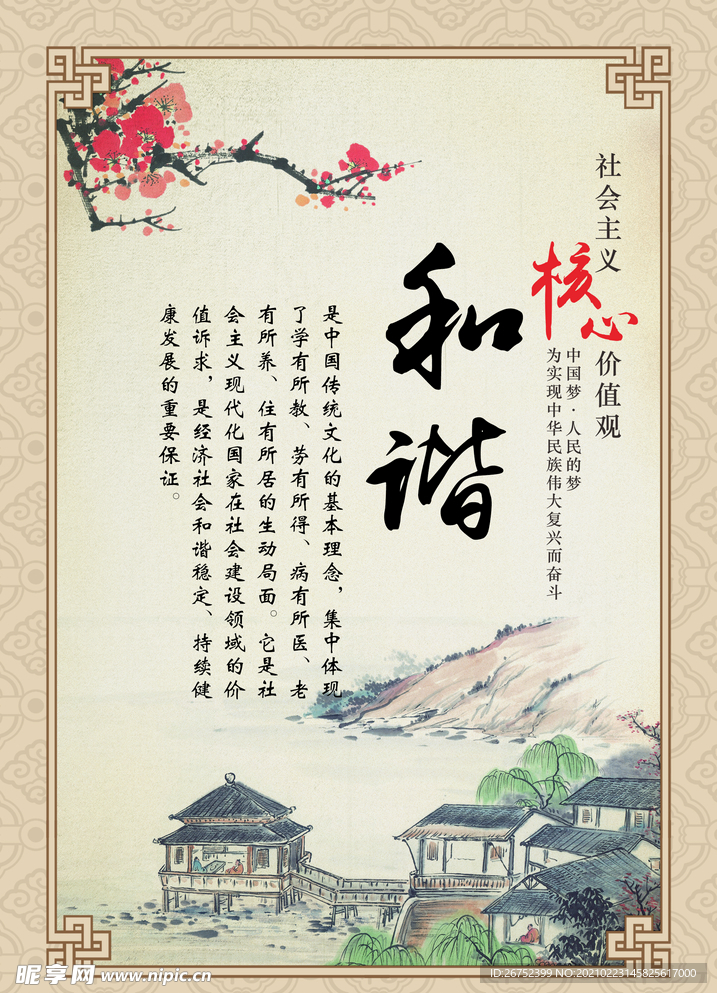 社会主义
核心
价值观
中国梦·人民的梦
为实现中华民族伟大复兴而奋斗
和谐
是中国传统文化的基本理念，集中体现
了学有所教、劳有所得、病有所医、老
有所养、住有所居的生动局面。它是社
会主义现代化国家在社会建设领域的价
值诉求，是经济社会和谐稳定、持续健
康发展的重要保证。
昵享网 www.nipic.cn
ID:26752399 NO:20210223145825617000